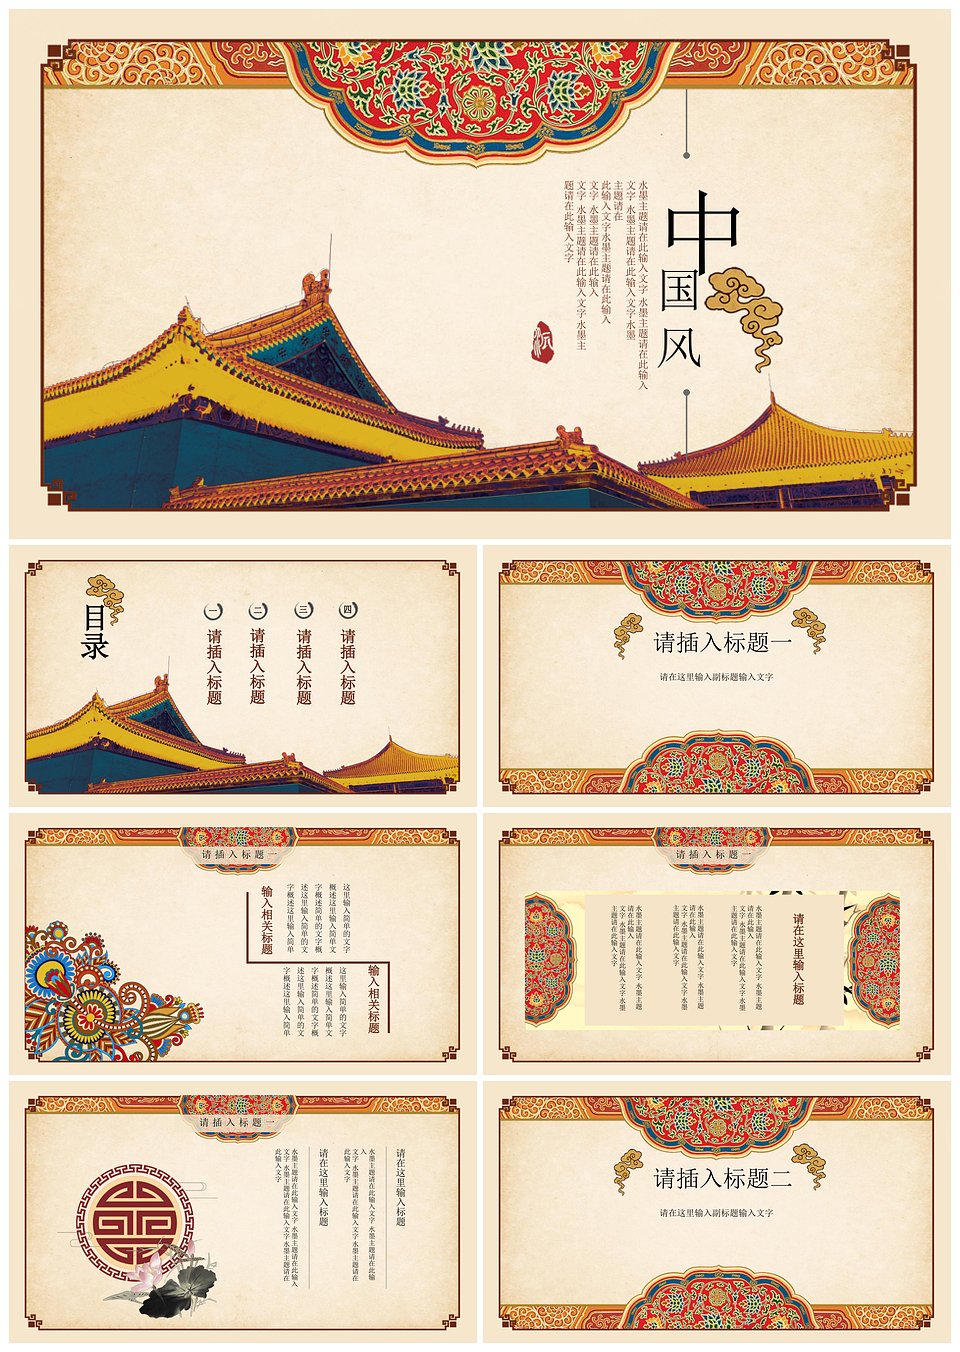 中
国
风
水墨主题请在此输入文字 水墨主题请在此输入
文字 水墨主题请在此输入文字水墨
主题请在
此输入文字水墨主题请在此输入
文字 水墨主题请在此输入
文字 水墨主题请在此输入文字水墨主
题请在此输入文字
目录
一
请插入标题
二
请插入标题
三
请插入标题
四
请插入标题
请插入标题一
请在这里输入副标题输入文字
请插入标题一
输入相关标题
这里输入简单的文字
概述这里输入简单文
字概述简单的文字概
述这里输入简单的文
字概述这里输入简单
输入相关标题
这里输入简单的文字
概述这里输入简单文
字概述简单的文字概
述这里输入简单的文
字概述这里输入简单
请插入标题一
请在这里输入标题
水墨主题请在此输入文字 水墨主题
请在此输入
文字 水墨主题请在此输入文字 水墨
主题请在此输入文字
水墨主题请在此输入文字 水墨主题
请在此输入
文字 水墨主题请在此输入文字 水墨
主题请在此输入文字
水墨主题请在此输入文字 水墨主题
请在此输入
文字 水墨主题请在此输入文字 水墨
主题请在此输入文字
请插入标题一
请在这里输入标题
水墨主题请在此输入文字 水墨主题请在此输
入
文字 水墨主题请在此输入文字 水墨主题请在
此输入文字
请在这里输入标题
水墨主题请在此输入文字 水墨主题请在此输入
文字 水墨主题请在此输入文字 水墨主题请在
此输入文字
请插入标题二
请在这里输入副标题输入文字